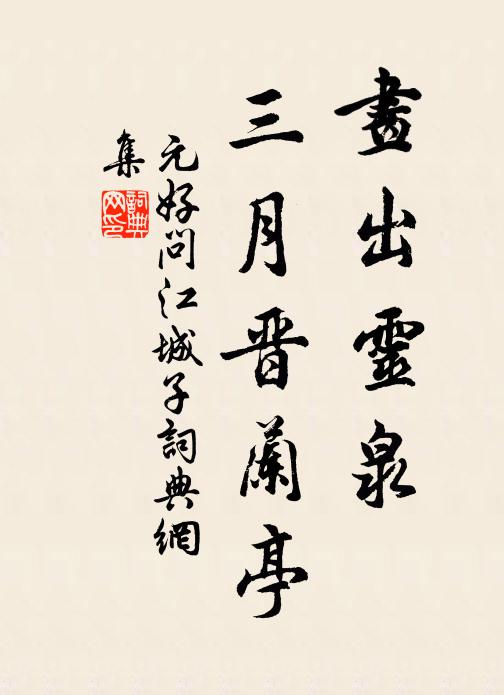 畫出靈泉
三月晋蘭亭
元好问江城子詞典網
集
詞典
网印